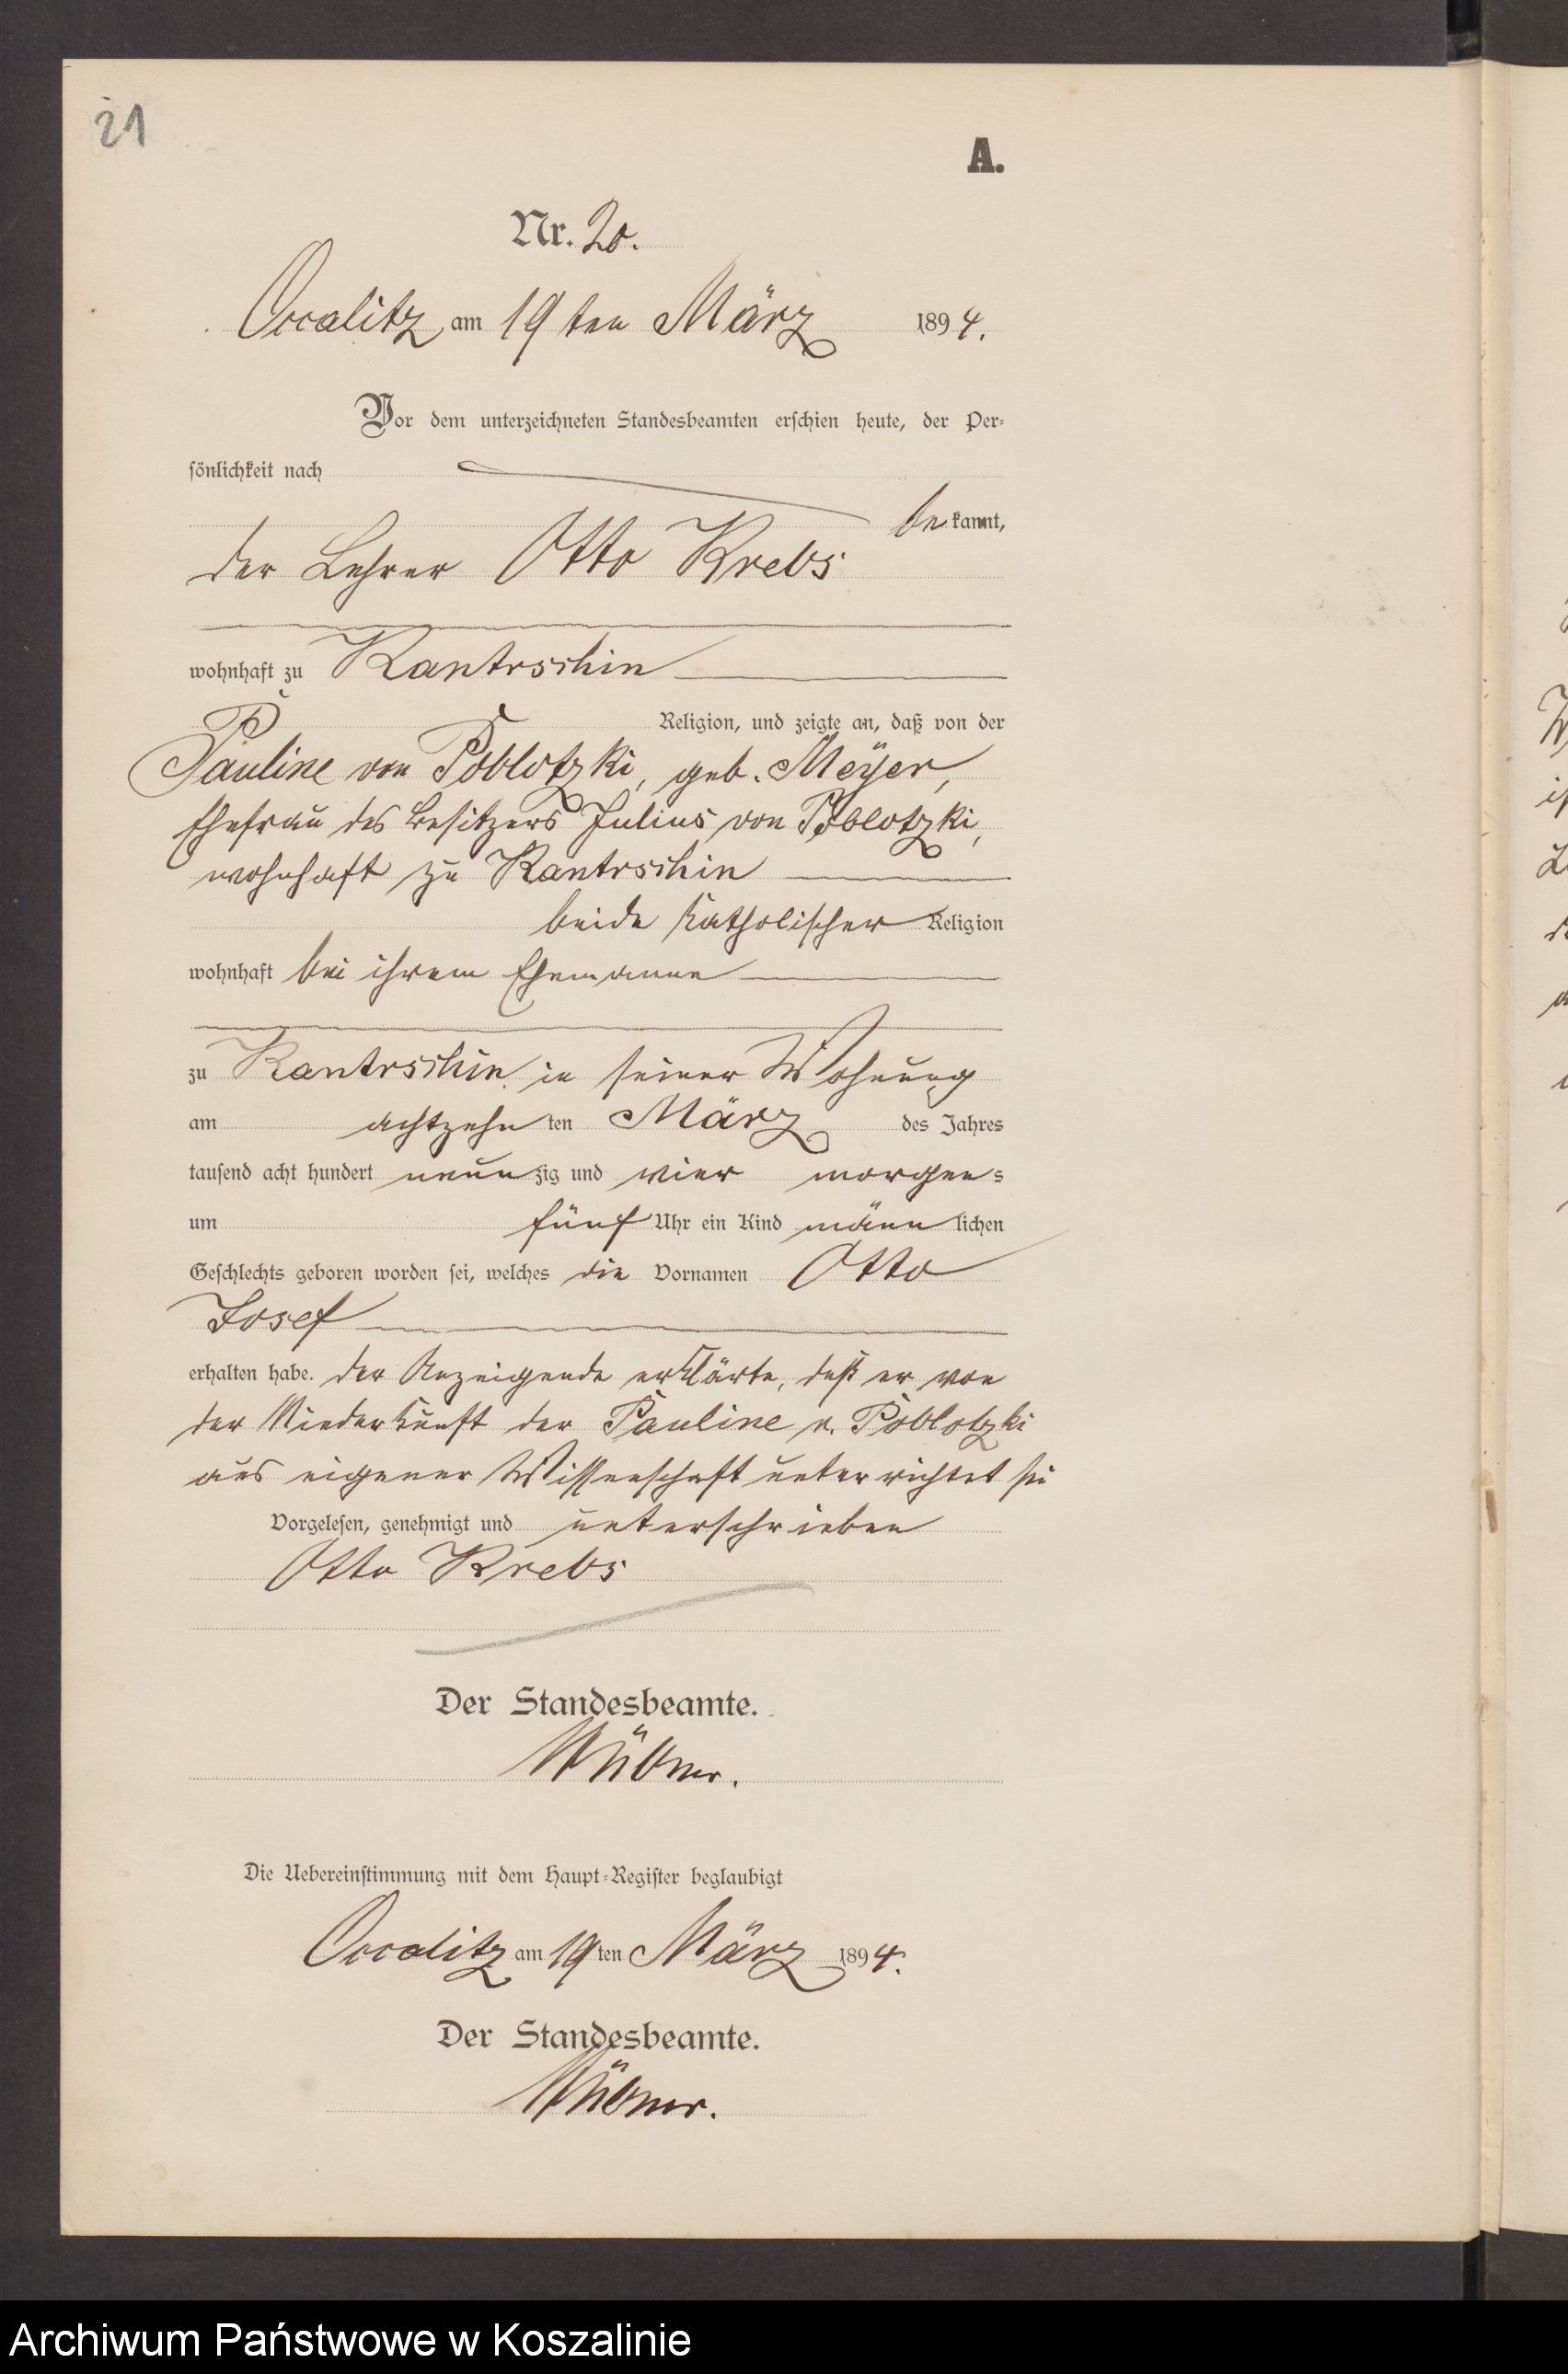 21
A.
Nr. 20.
Occalitz am 19 ten März 1894.
Vor dem unterzeichneten Standesbeamten erschien heute, der Per-
sönlichkeit nach
bekannt,
der Lehrer Otto Krebs
wohnhaft zu Kantrschin
Religion, und zeigte an, daß von der
Pauline von Poblotzki, geb. Meÿer,
Ehefrau des Besitzers Julius von Poblotzki,
wohnhaft zu Kantrschin
beide katholischer Religion
wohnhaft bei ihrem Ehemanne
zu Kantrschin in seiner Wohnung
am achtzehn ten März des Jahres
tausend acht hundert neunzig und vier morgens
um fünf Uhr ein Kind männlichen
Geschlechts geboren worden sei, welches die Vornamen Otto
Josef
erhalten habe. Der Anzeigende erklärte, daß er von
der Niederkunft der Pauline v. Poblotzki
aus eigener Wissenschaft unterrichtet sei
Vorgelesen, genehmigt und unterschrieben
Otto Krebs
Der Standesbeamte.
Die Uebereinstimmung mit dem Haupt-Register beglaubigt
Occalitz am 19 ten März 1894.
Der Standesbeamte.
Archiwum Państwowe w Koszalinie